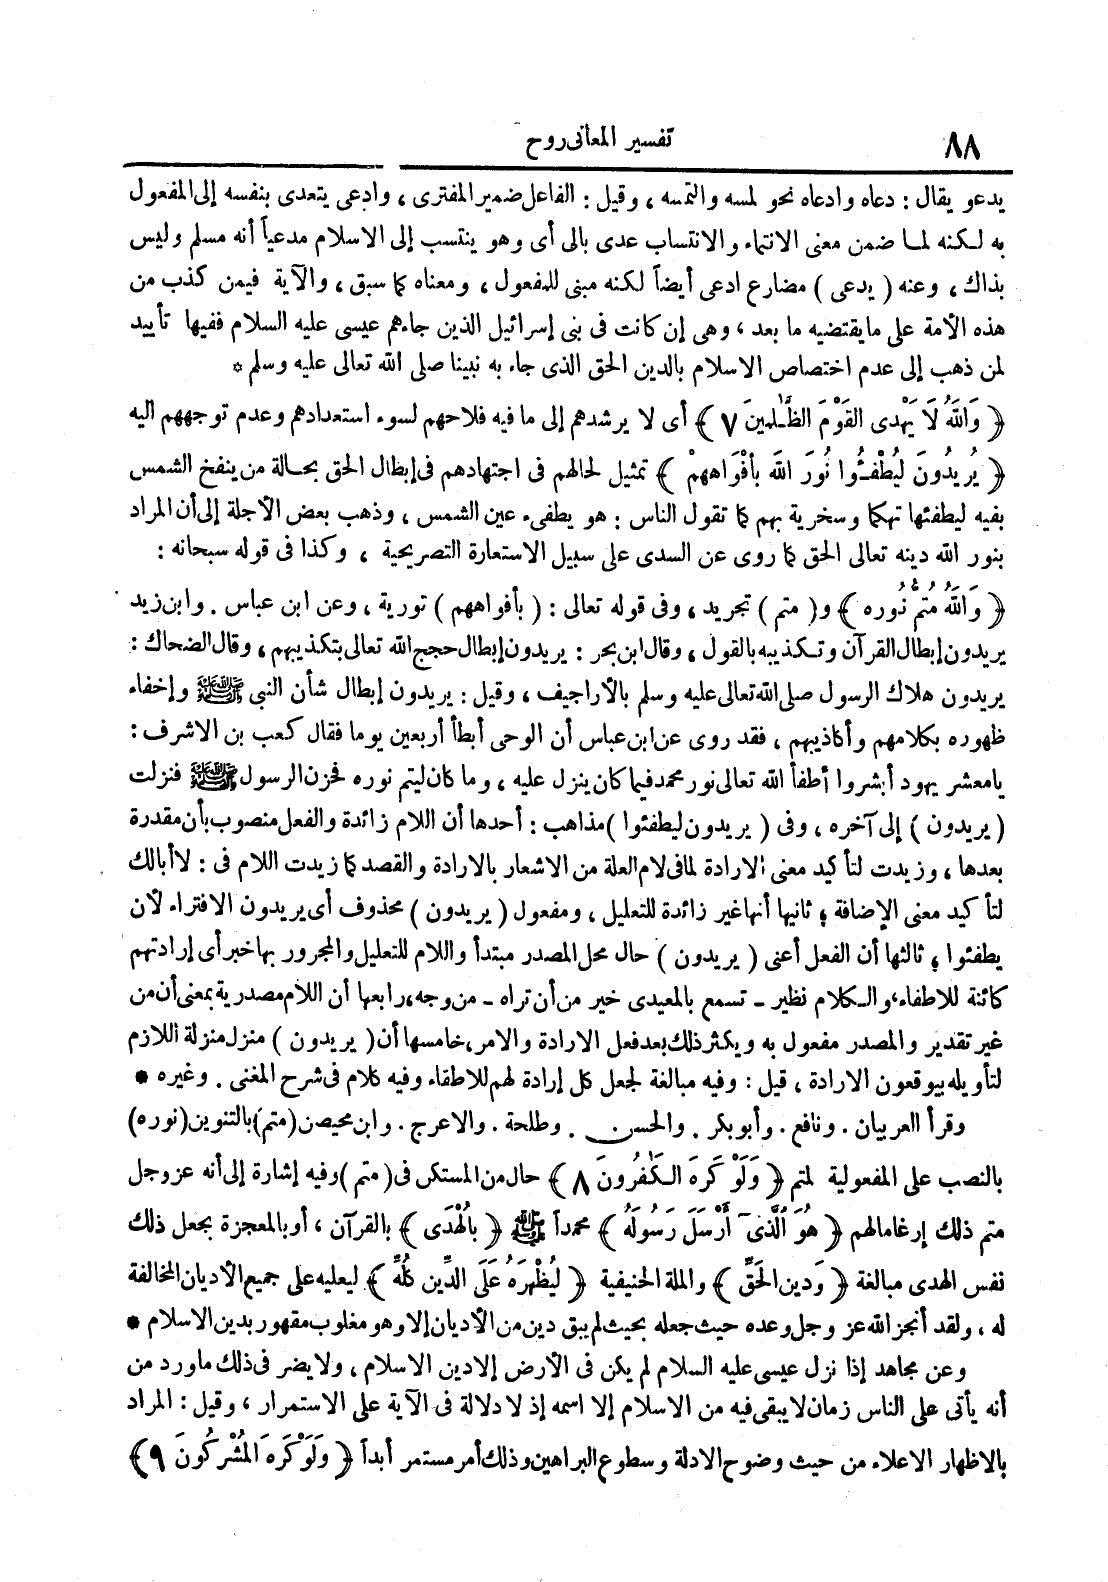 ٨٨
تفسير المعانى روح
يدعو يقال : دعاه وادعاه نحو لمسه والتمسه ، وقيل : الفاعل ضمير المفترى ، وادعى يتعدى بنفسه إلى المفعول
به لكنه لما ضمن معنى الانتماء والانتساب عدى بالى أى وهو ينتسب إلى الاسلام مدعياً أنه مسلم وليس
بذاك ، وعنه ( يدعى ) مضارع ادعى أيضاً لكنه مبنى للمفعول ، ومعناه كما سبق ، والآية فيمن كذب من
هذه الأمة على ما يقتضيه ما بعد ، وهى إن كانت فى بنى إسرائيل الذين جاءهم عيسى عليه السلام ففيها تأييد
لمن ذهب إلى عدم اختصاص الاسلام بالدين الحق الذى جاء به نبينا صلى الله تعالى عليه وسلم *
﴿ وَاللَّهُ لَا يَهْدِى القَوْمَ الظَّـٰلِمِينَ ٧ ﴾ أى لا يرشدهم إلى ما فيه فلاحهم لسوء استعدادهم وعدم توجههم اليه
﴿ يُرِيدُونَ لِيُطْفِـُٔوا نُورَ اللَّهِ بِأَفْوَاهِهِمْ ﴾ تمثيل لحالهم فى اجتهادهم فى إبطال الحق بحالة من ينفخ الشمس
بفيه ليطفئها تهكما وسخرية بهم كما تقول الناس : هو يطفىء عين الشمس ، وذهب بعض الأجلة إلى أن المراد
بنور الله دينه تعالى الحق كما روى عن السدى على سبيل الاستعارة التصريحية ، وكذا فى قوله سبحانه :
﴿ وَاللَّهُ مُتِمٌّ نُورِهِ ﴾ و( متم ) تجريد ، وفى قوله تعالى : ( بأفواههم ) تورية ، وعن ابن عباس . وابن زيد
يريدون إبطال القرآن وتكذيبه بالقول ، وقال ابن بحر : يريدون إبطال حجج الله تعالى بتكذيبهم ، وقال الضحاك :
يريدون هلاك الرسول صلى الله تعالى عليه وسلم بالأراجيف ، وقيل : يريدون إبطال شأن النبى ﷺ وإخفاء
ظهوره بكلامهم وأكاذيبهم ، فقد روى عن ابن عباس أن الوحى أبطأ أربعين يوما فقال كعب بن الاشرف :
يامعشر يهود أبشروا أطفأ الله تعالى نور محمد فيما كان ينزل عليه ، وما كان ليتم نوره فحزن الرسول ﷺ فنزلت
( يريدون ) إلى آخره ، وفى ( يريدون ليطفئوا ) مذاهب : أحدها أن اللام زائدة والفعل منصوب بأن مقدرة
بعدها ، وزيدت لتأكيد معنى الارادة لما فى لام العلة من الاشعار بالارادة والقصد كما زيدت اللام فى : لا أبالك
لتأكيد معنى الإضافة ؛ ثانيها أنها غير زائدة للتعليل ، ومفعول ( يريدون ) محذوف أى يريدون الافتراء لأن
يطفئوا ؛ ثالثها أن الفعل أعنى ( يريدون ) حال محل المصدر مبتدأ واللام للتعليل والمجرور بها خبر أى إرادتهم
كائنة للاطفاء، والكلام نظير - تسمع بالمعيدى خير من أن تراه - من وجه، رابعها أن اللام مصدرية بمعنى أن من
غير تقدير والمصدر مفعول به ويكثر ذلك بعد فعل الارادة والامر، خامسها أن ( يريدون ) منزل منزلة اللازم
لتأويله بيوقعون الارادة ، قيل : وفيه مبالغة لجعل كل إرادة لهم للاطفاء وفيه كلام فى شرح المغنى . وغيره *
وقرأ العربيان . ونافع . وأبو بكر . والحسن . وطلحة . والاعرج . وابن محيصن ( متم ) بالتنوين ( نوره )
بالنصب على المفعولية لمتم ﴿ وَلَوْ كَرِهَ الكَـٰفِرُونَ ٨ ﴾ حال من المستكن فى ( متم ) وفيه إشارة إلى أنه عز وجل
متم ذلك إرغاما لهم ﴿ هُوَ الَّذِىٓ أَرْسَلَ رَسُولَهُ ﴾ محمداً ﷺ ﴿ بِالْهُدَى ﴾ بالقرآن ، أو بالمعجزة بجعل ذلك
نفس الهدى مبالغة ﴿ وَدِينِ الحَقِّ ﴾ والملة الحنيفية ﴿ لِيُظْهِرَهُ عَلَى الدِّينِ كُلِّهِ ﴾ ليعليه على جميع الأديان المخالفة
له ، ولقد أنجز الله عز وجل وعده حيث جعله بحيث لم يبق دين من الأديان إلا وهو مغلوب مقهور بدين الاسلام *
وعن مجاهد إذا نزل عيسى عليه السلام لم يكن فى الأرض إلا دين الاسلام ، ولا يضر فى ذلك ما ورد من
أنه يأتى على الناس زمان لا يبقى فيه من الاسلام إلا اسمه إذ لا دلالة فى الآية على الاستمرار ، وقيل : المراد
بالاظهار الاعلاء من حيث وضوح الادلة وسطوع البراهين وذلك أمر مستمر أبداً ﴿ وَلَوْ كَرِهَ المُشْرِكُونَ ٩ ﴾